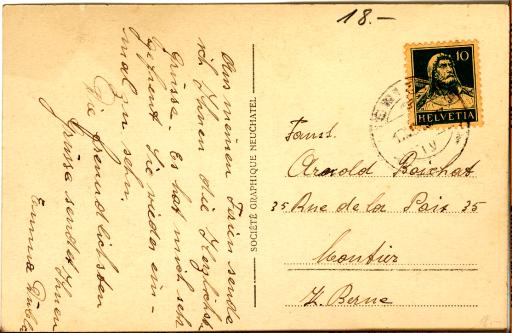 18.-
Aus meinen Ferien sende
ich Ihnen die Herzlichst
Grüsse. Es hat mich sehr
gefreut Sie wieder ein-
mal zu sehn.
Die freundlichsten
Grüsse sendet Ihnen
Emma
SOCIÉTÉ GRAPHIQUE NEUCHATEL
10
HELVETIA
Famt.
Arnold Boichat
35 Rue de la Paix 35
Moutier
Z. Berne